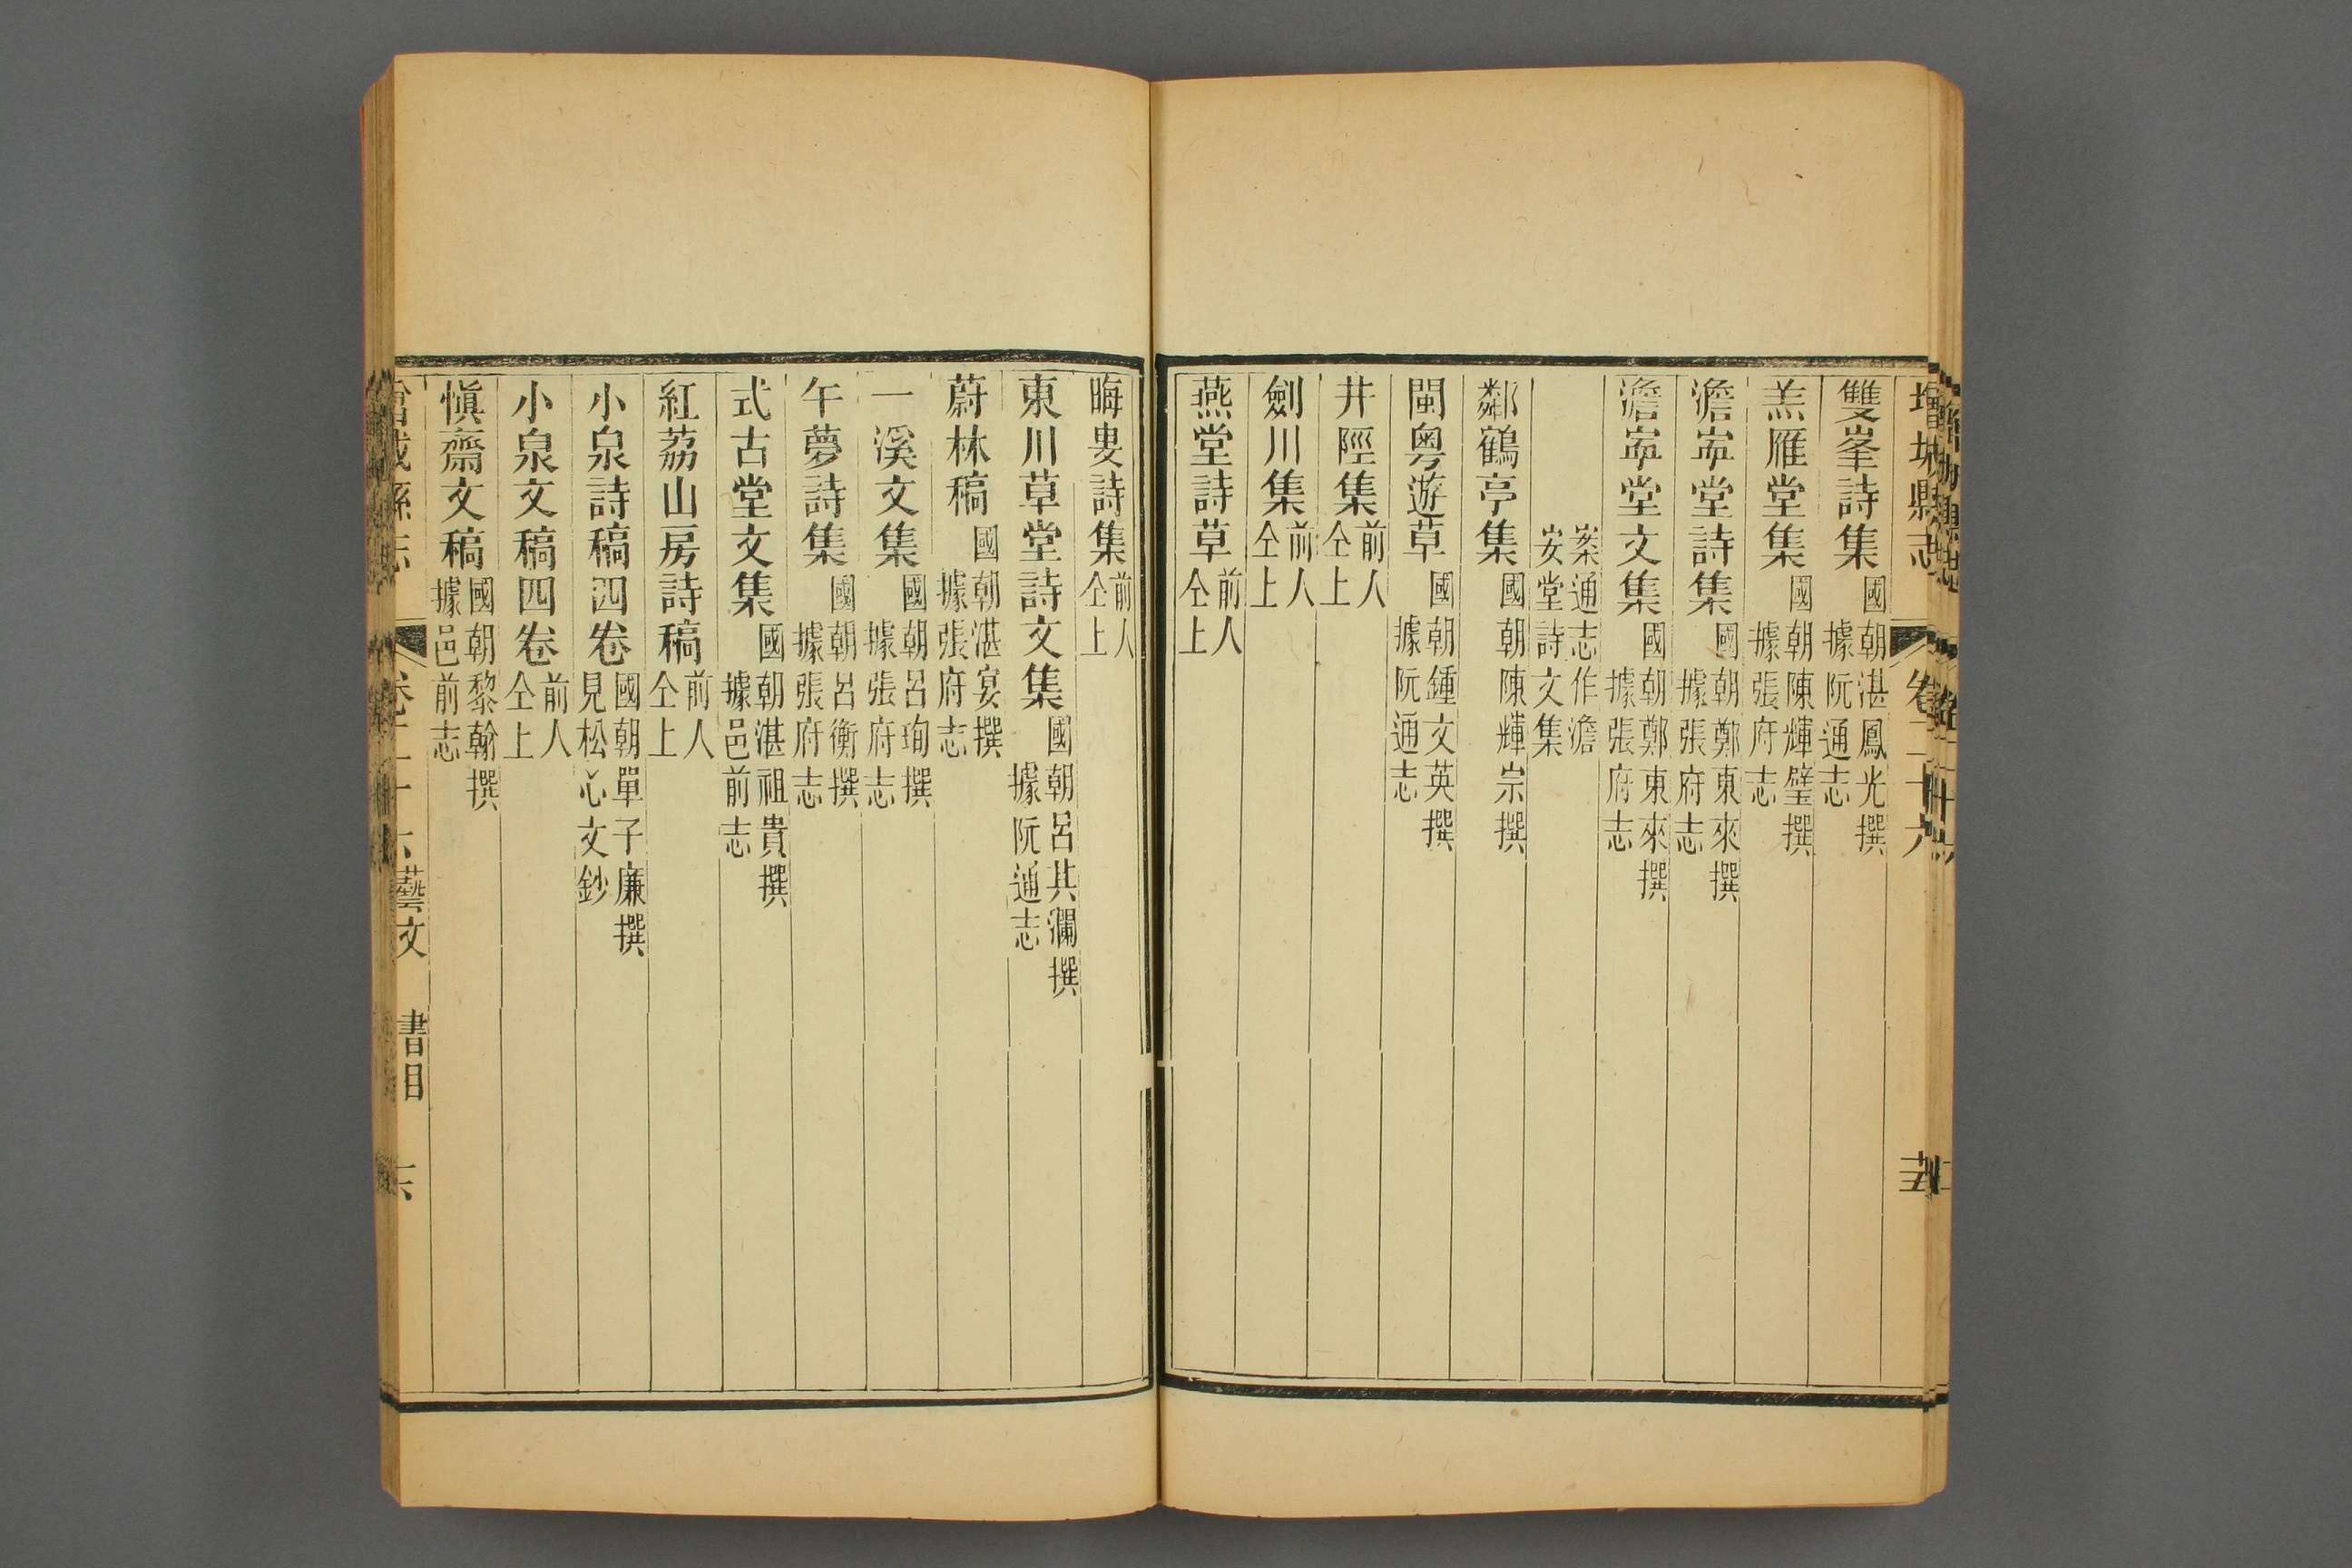 增城縣志 卷二十六
雙峯詩集 國朝湛鳳光撰 據阮通志
羔雁堂集 國朝陳輝璧撰 據張府志
澹寍堂詩集 國朝鄭東來撰 據張府志
澹寍堂文集 國朝鄭東來撰 據張府志
案通志作澹 安堂詩文集
鄰鶴亭集 國朝陳輝宗撰
閩粵遊草 國朝鍾文英撰 據阮通志
井陘集 前人 仝上
劍川集 前人 仝上
燕堂詩草 前人 仝上
晦叟詩集 前人 仝上
東川草堂詩文集 國朝呂其瀾撰 據阮通志
蔚林稿 國朝湛宴撰 據張府志
一溪文集 國朝呂珣撰 據張府志
午夢詩集 國朝呂衡撰 據張府志
式古堂文集 國朝湛祖貴撰 據邑前志
紅荔山房詩稿 前人 仝上
小泉詩稿四卷 國朝單子廉撰 見松心文鈔
小泉文稿四卷 前人 仝上
愼齋文稿 國朝黎翰撰 據邑前志
藝文 書目